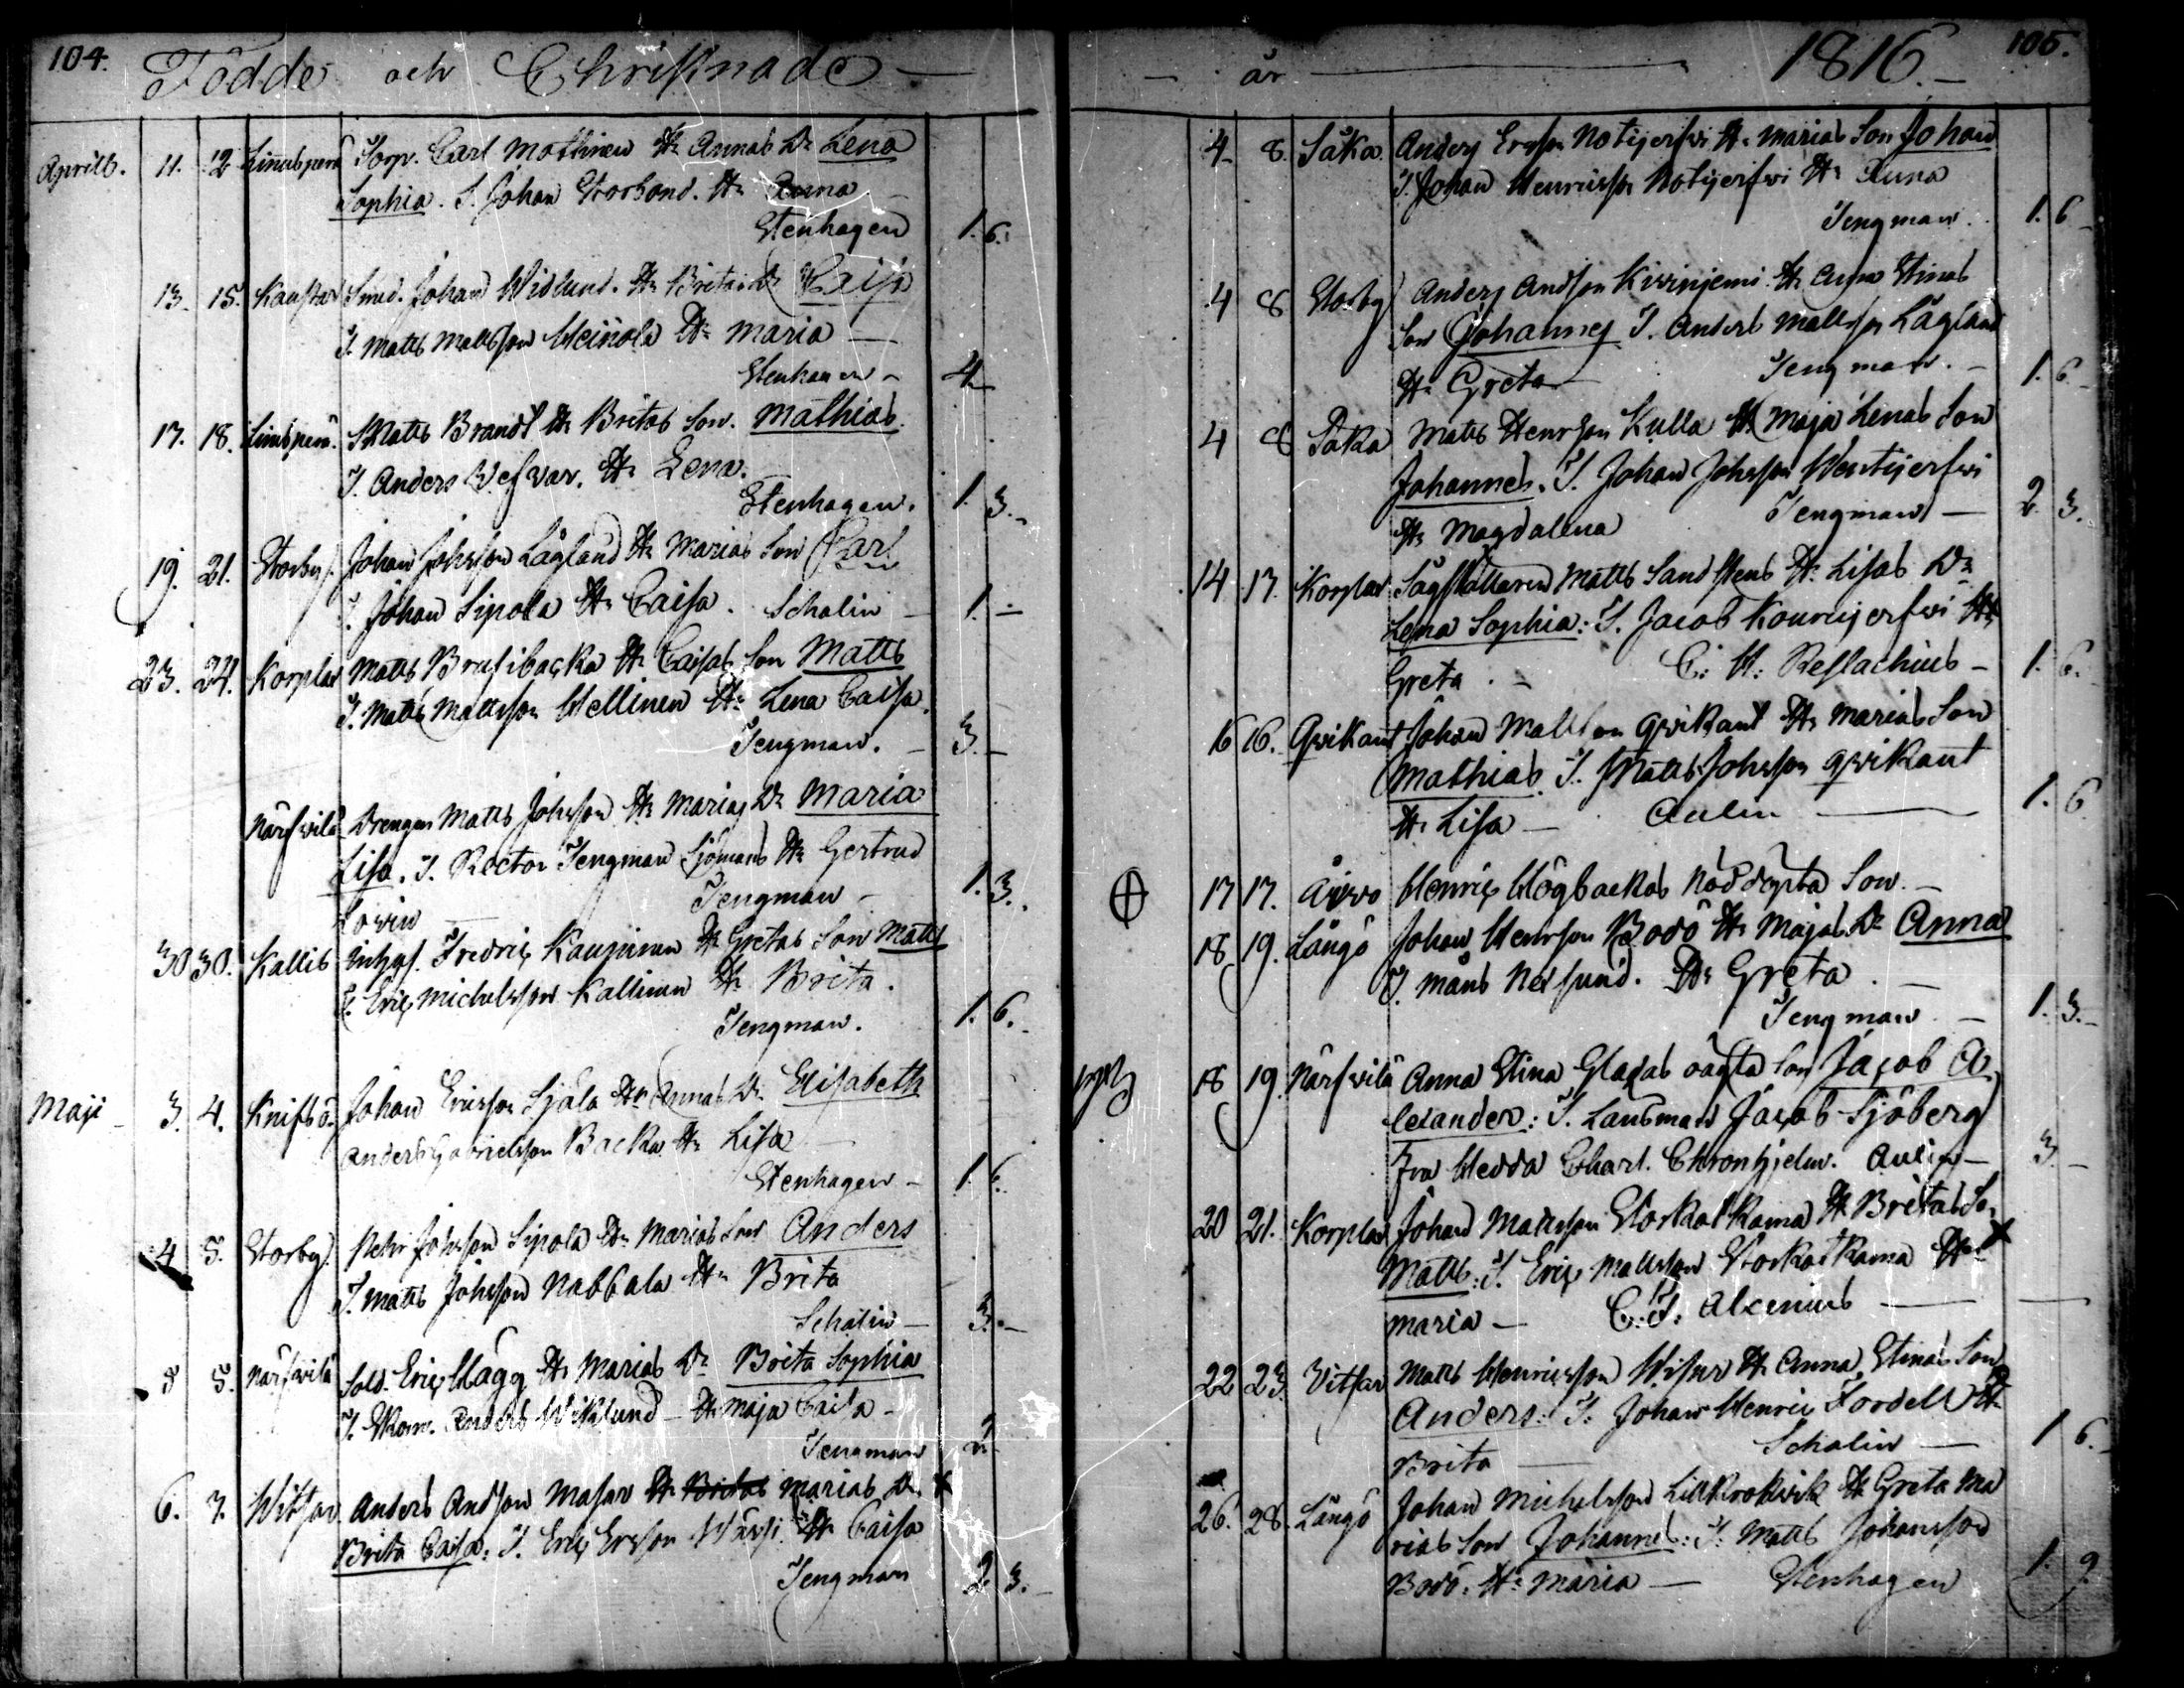 104.
Födde och Christnade —
Aprill. 11. 12 Linnuspera Torp. Carl Mathinen H: Annas Dr Lena
Sophia. T. Johan Storbond. H: Anna
Stenhagen 1. 6.
13. 15. Kaustar Smed. Johan Widlund. H: Britas Dr Caisa
T. Matts Mattsson Heinola H: Maria —
Stenhagen — 4 —
17. 18. Linuspera. Matts Brandt H: Britas Son. Mathias.
T. Anders Wefvar. H: Lena.
Stenhagen. 1. 3. -
19. 21. Storby Johan Johsson Lågland H: Marias Son Carl
T. Johan Sipola H: Caisa. Schalin — 1. —
23. 24. Korplax Matts Brusibacka H: Caisas Son Matts
T. Matts Mattsson Hellinen H: Lena Caisa.
Tengman. — 3. —
Närfwilä Drengen Matts Johsson H: Marias Dr Maria
Lisa. T. Rector Tengman Sjömans H: Gertrud
Lovin Tengman — 1. 3.
30 30. Kallis Inhys. Fredric Kaupinen H: Gretas Son Matts
T. Eric Michelsson Kallinen H: Brita.
Tengman. 1. 6. -
Maji 3. 4. Knifsö. Johan Ericsson Själa H: Annas Dr Elisabeth
Anders Gabrielsson Backa H: Lisa
Stenhagen — 1. 6.
4 5. Storby Petr Johsson Sipola H: Marias Son Anders
T. Matts Johsson Nabbala H: Brita
Schalin — 3. —
5 5. Närfwilä Sold. Eric Hägg H: Marias Dr Brita Sophia
T. Skom. Anders Wiklund — H: Maja Caisa —
Tengman 2
6. 7. Witsar Anders Andsson Masar H: Britas Marias Dr
Brita Caisa: T. Eric Ersson H: Caisa
Tengman 2 3. -
— år — 1816. — 105.
4. 8. Såka. Anders Ersson Notijerfwi H: Marias Son Johan
T. Johan Henricsson Notijerfwi H: Anna
Tengman. 1. 6 -
4 8 Storby Anders Andsson Kivinjemi H: Anna Stinas
Son Johannes T. Anders Mattsson Lågland
H: Greta — Tengman. — 1. 6. -
4 8 Såka Matts Henrsson Kulla H: Maja Lenas Son
Johannes. T. Johan Johsson Wentijerfwi
H: Magdalena Tengman — 2. 3.
14 17. Korplax Sågställaren Matts Sandstens H: Lisas Dr
Lena Sophia: T. Jacob Kourijerfwi H:
Greta. — C: H: Reslachius — 1. 6. -
16 16. Qwikant Johan Mattsson Qwikant H: Marias Son
Mathias. T. Matts Johsson Qwikant
H: Lisa — Aulin — 1. 6
17 17. Åivo Henric Högbackas nöddöpta Son. —
18. 19. Långö Johan Henrsson Bodö H: Majas Dr Anna
T. Måns Nersund. H: Greta. —
Tengman — 1. 3. -
18 19. Närfwilä Anna Stina Gladas oägta Son Jacob A
lexander: T. Lansman Jacob Sjöberg
Fru Hedda Charl. Chronhjelm. Aulin — 3. —
20 21. Korplax Johan Mattsson Storkatkama H: Britas So
Matts: T. Eric Mattsson Storkatkama H:
Maria — C: J: Alcenius — —
22 23. Vitsar Matts Henricsson Wisar H: Anna Stinas Son
Anders: T: Johan Henric Fordell H:
Brita — Schalin — 1 6. -
26. 28. Långö Johan Michelsson Lillkrokvik H: Greta Ma
rias Son Johannes: T: Matts Johansson
Bodö: H: Maria — Stenhagen 1. 9